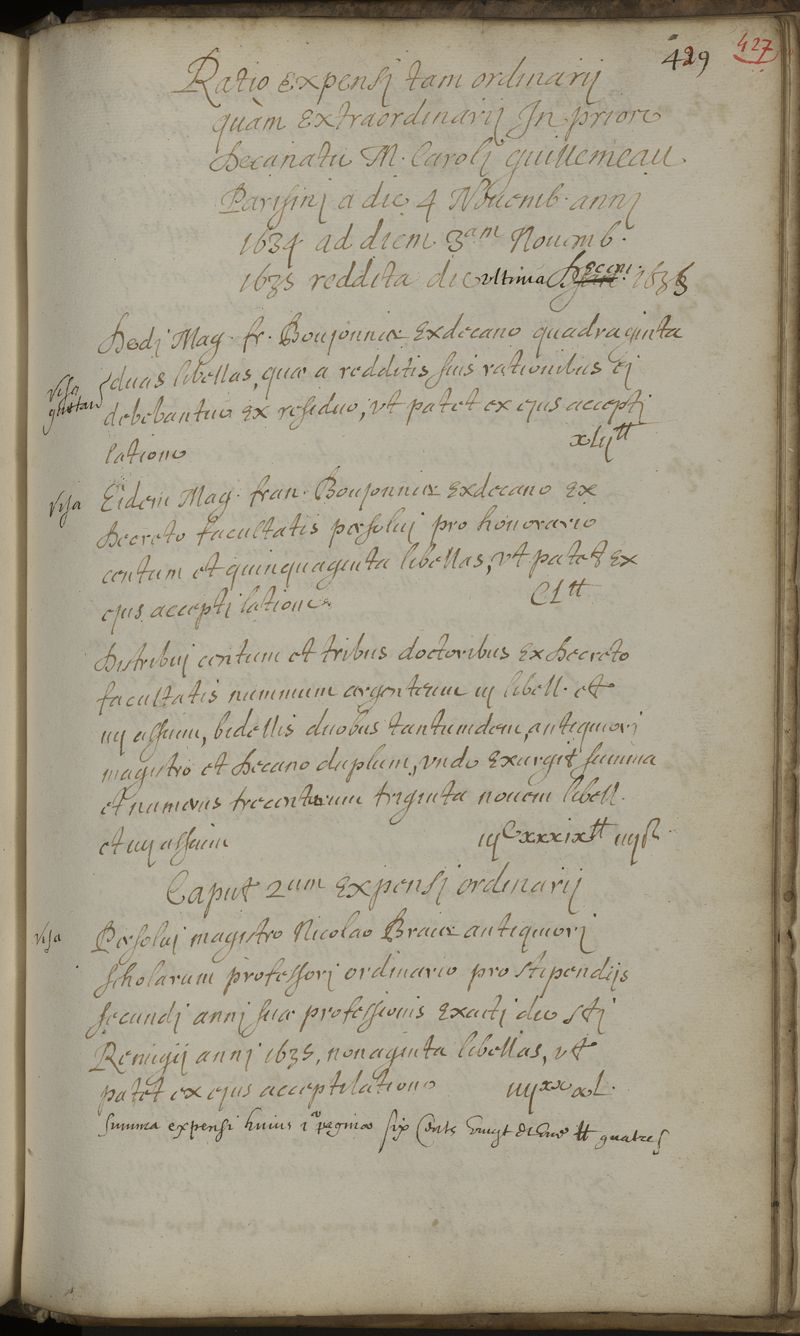 429 427
Ratio expensj tam ordinarij
quàm extraordinarij In priore
decanatu M. Carolj guillemeau
Parisinj a die 4 Nouemb. annj
1634 ad diem 3am Nouemb.
1635 reddita die vltima decem. 1636
Dedj Mag. fr. Boujonnier exdecano quadraginta
duas libellas, quæ a redditis suis rationibus ej
debebantur ex residuo, vt patet ex ejus acceptj
latione xlij tt
visa
Eidem Mag. fran. Boujonnier exdecano ex
decreto facultatis persoluj pro honorario
centum et quinquaginta libellas, vt patet ex
ejus acceptj latione. CL tt
visa
Distribuj centum et tribus doctoribus ex decreto
facultatis nummum argenteum iij libell. et
iiij assium, bidellis duobus tantumdem, antiquiorj
magistro et decano duplum, vnde exurgit summa
et numerus trecentarum triginta nouem libell.
et iiij assium iijC xxxix tt iiij s.
Caput 2um expensj ordinarij
visa
Persoluj magistro Nicolao Braier antiquiorj
scholarum professorj ordinario pro stipendijs
secundj annj suæ professionis exactj die stj
Remigij annj 1635, nonaginta libellas, vt
patet ex ejus acceptilatione iiijxx x l.
summa expensi huius 1æ paginæ six Cents vingt et une tt quatre s